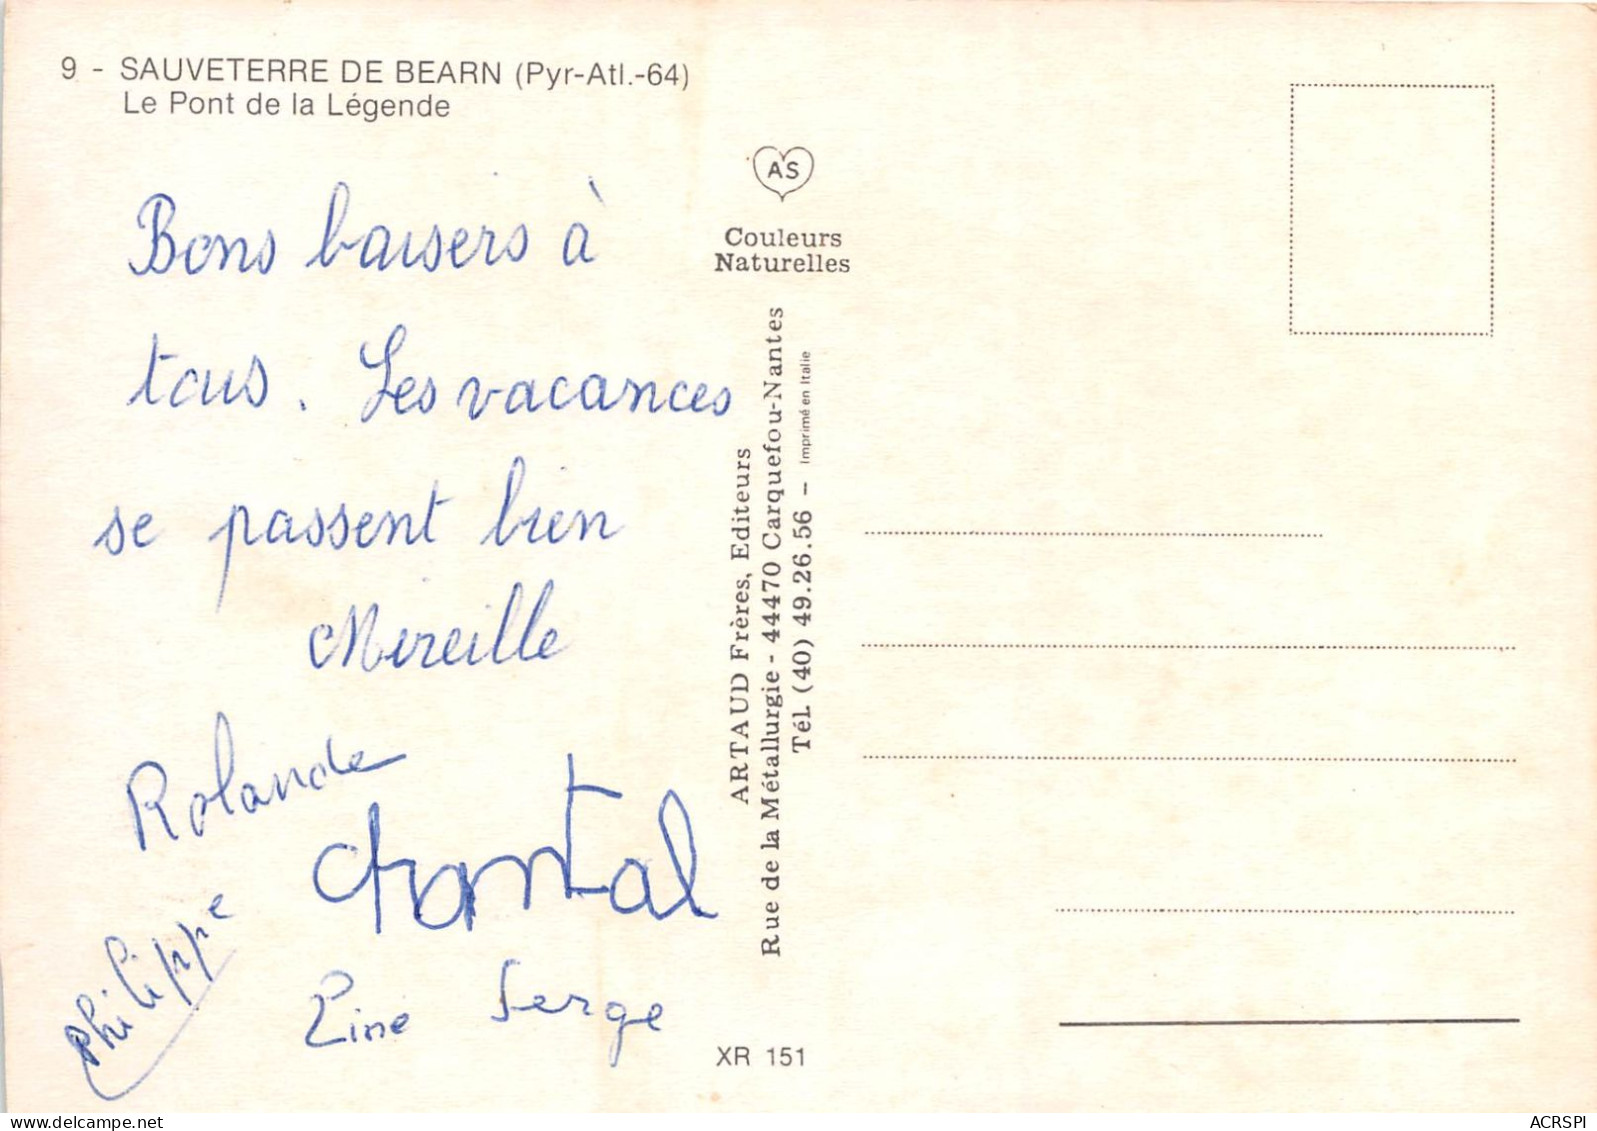 9 - SAUVETERRE DE BEARN (Pyr-Atl.-64)
Le Pont de la Légende
Bons baisers à
tous. Les vacances
se passent bien
Mireille
Rolande
Chantal
Philippe
Line Serge
AS
Couleurs
Naturelles
ARTAUD Frères, Editeurs
Rue de la Métallurgie - 44470 Carquefou-Nantes
Tél. (40) 49.26.56 - Imprimé en Italie
XR 151
ACRSPI